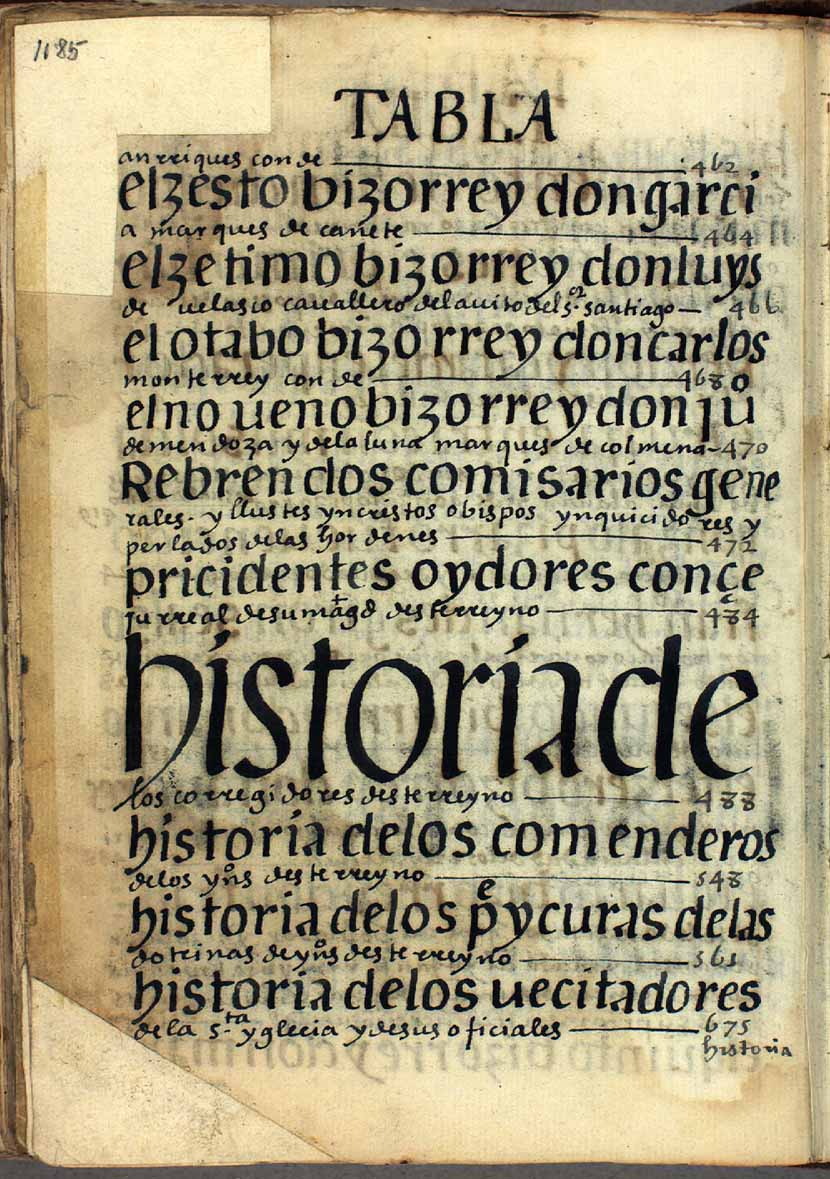 1185
TABLA
anrriques conde 462
elzesto bizorrey dongarci
a marques de canete 464
elzetimo bizorrey donluys
de uelasco cauallero delauito del s.or santiago 466
el otabo bizorrey doncarlos
monterrey conde 468
elno ueno bizorrey don juo
demendoza y dela luna marques de colmena 470
Rebrendos comisarios gene
rales. y llustes yncristos obispos ynquicidores y
perlados delas hordenes 472
pricidentes oydores conçe
ju rreal desu magd desterreyno 484
historia de
los corregidores desterreyno 488
historia delos comenderos
delos yns desterreyno 548
historia delos pe y curas delas
dotrinas de yns desterreyno 561
historia delos uecitadores
de la s.ta yglecia y desus oficiales 675
historia